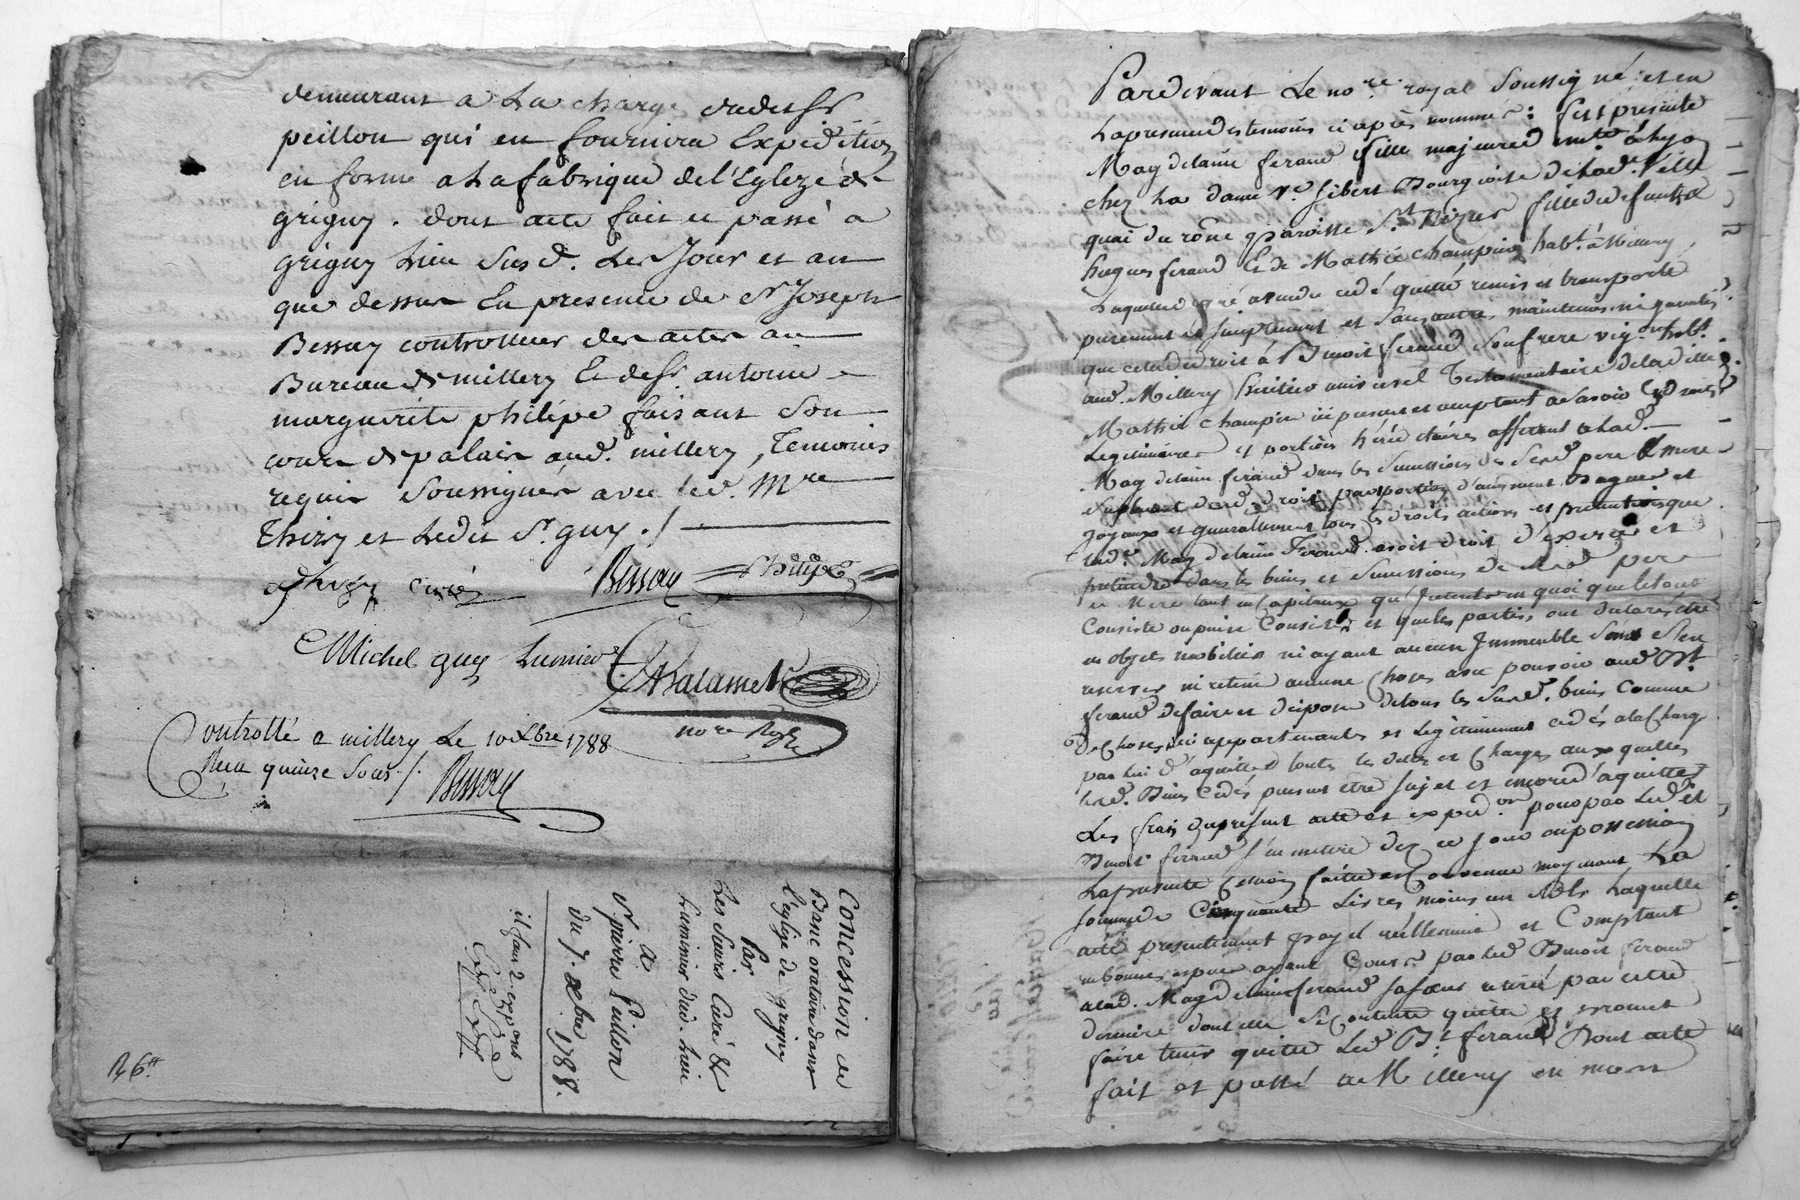 demeurant a la charge dudit sr
peillon qui en fournira Expedition
en forme a la fabrique de l'Eglize de
grigny. dont acte fait et passé a
grigny lieu susd. Les Jour et an
que dessus En presence de sr Joseph
Bessay controlleur des actes au
Bureau de millery Et de sr. antoine
marguerite philipe faisant son
cours de palais aud. millery, Temoins
requis soussignés avec led. Mre
Thiry et Ledit Sr. guy ./.
Thiry curé Bessay Philipe
Michel guy Lumini
nore Royal
Controllé a millery Le 10 Xbre 1788
Reçu quinze sous ./. Bessay
Concession de
Banc oratoire dans
l'eglize de grigny
Par
Les sieurs Curé &
Luminier dud. lieu
a
Sr pierre Peillon
du 7. Xbre 1788.
il faut 2 exp ons
Pardevant Le no.re royal soussigné et en
la presence des temoins ci après nommés: fut presente
Magdelaine ferand fille majeure d. nte à Lyon
chez La dame ve. Gibert Bourgeoise de lad. Ville
quai du rône paroisse St. Nizier fille de defunts
hugues ferand Et de Mathie champin hab.t à Millery
Laquelle de gré a vendu cedé quitté remis et transporté
purement et simplement et sans autre maintenue ni garantie
que celle de droit à Benoit ferand son frere vig.on hab.t
aud. Millery heritier universel Testamentaire de ladite
Mathie champin ici present et acceptant a savoir Les droits
Legitimaires et portions héréditaires afferant a lad.
Magdelaine ferand dans les successions de sesd. pere & mere
joyaux et generallement tous les droits actions et pretentions que
lad. Magdelaine Ferand avoit droit d'exercer et
pretendre dans les biens et successions de sesd. pere
et Mere tant en Capitaux qu'Interets en quoi que le tout
Consiste ou puisse Consister et que les parties, ont declaré être
en objets mobiliers ni ayant aucun Immeuble sans s'en
reserver ni retenir aucune choses avec pouvoir aud. B.t
ferand de faire et disposer de tous les susd. biens comme
de choses lui appartenantes et Legitimement cedés a la Charge
par lui d'aquitter toutes les dettes et Charges auxquelles
lesd. Biens Cedés peuvent être sujet et encore d'aquitter
Les frais du present acte et exped.on pour par Led. B.t
Benoit ferand s'en mettre des ce jour en possession
La presente Cession faite et Convenue moyenant La
somme de Cinquante Livres moins un sols Laquelle
a été presentement payé reellement et Comptant
en bonnes especes ayant Cours par led. Benoit ferand
a lad. Magdelaine ferand sa sœur retiré par cette
derniere dont elle se contente quitte et promet
faire tenir quitte Led. B.t ferand Dont acte
fait et passé a Millery en mon